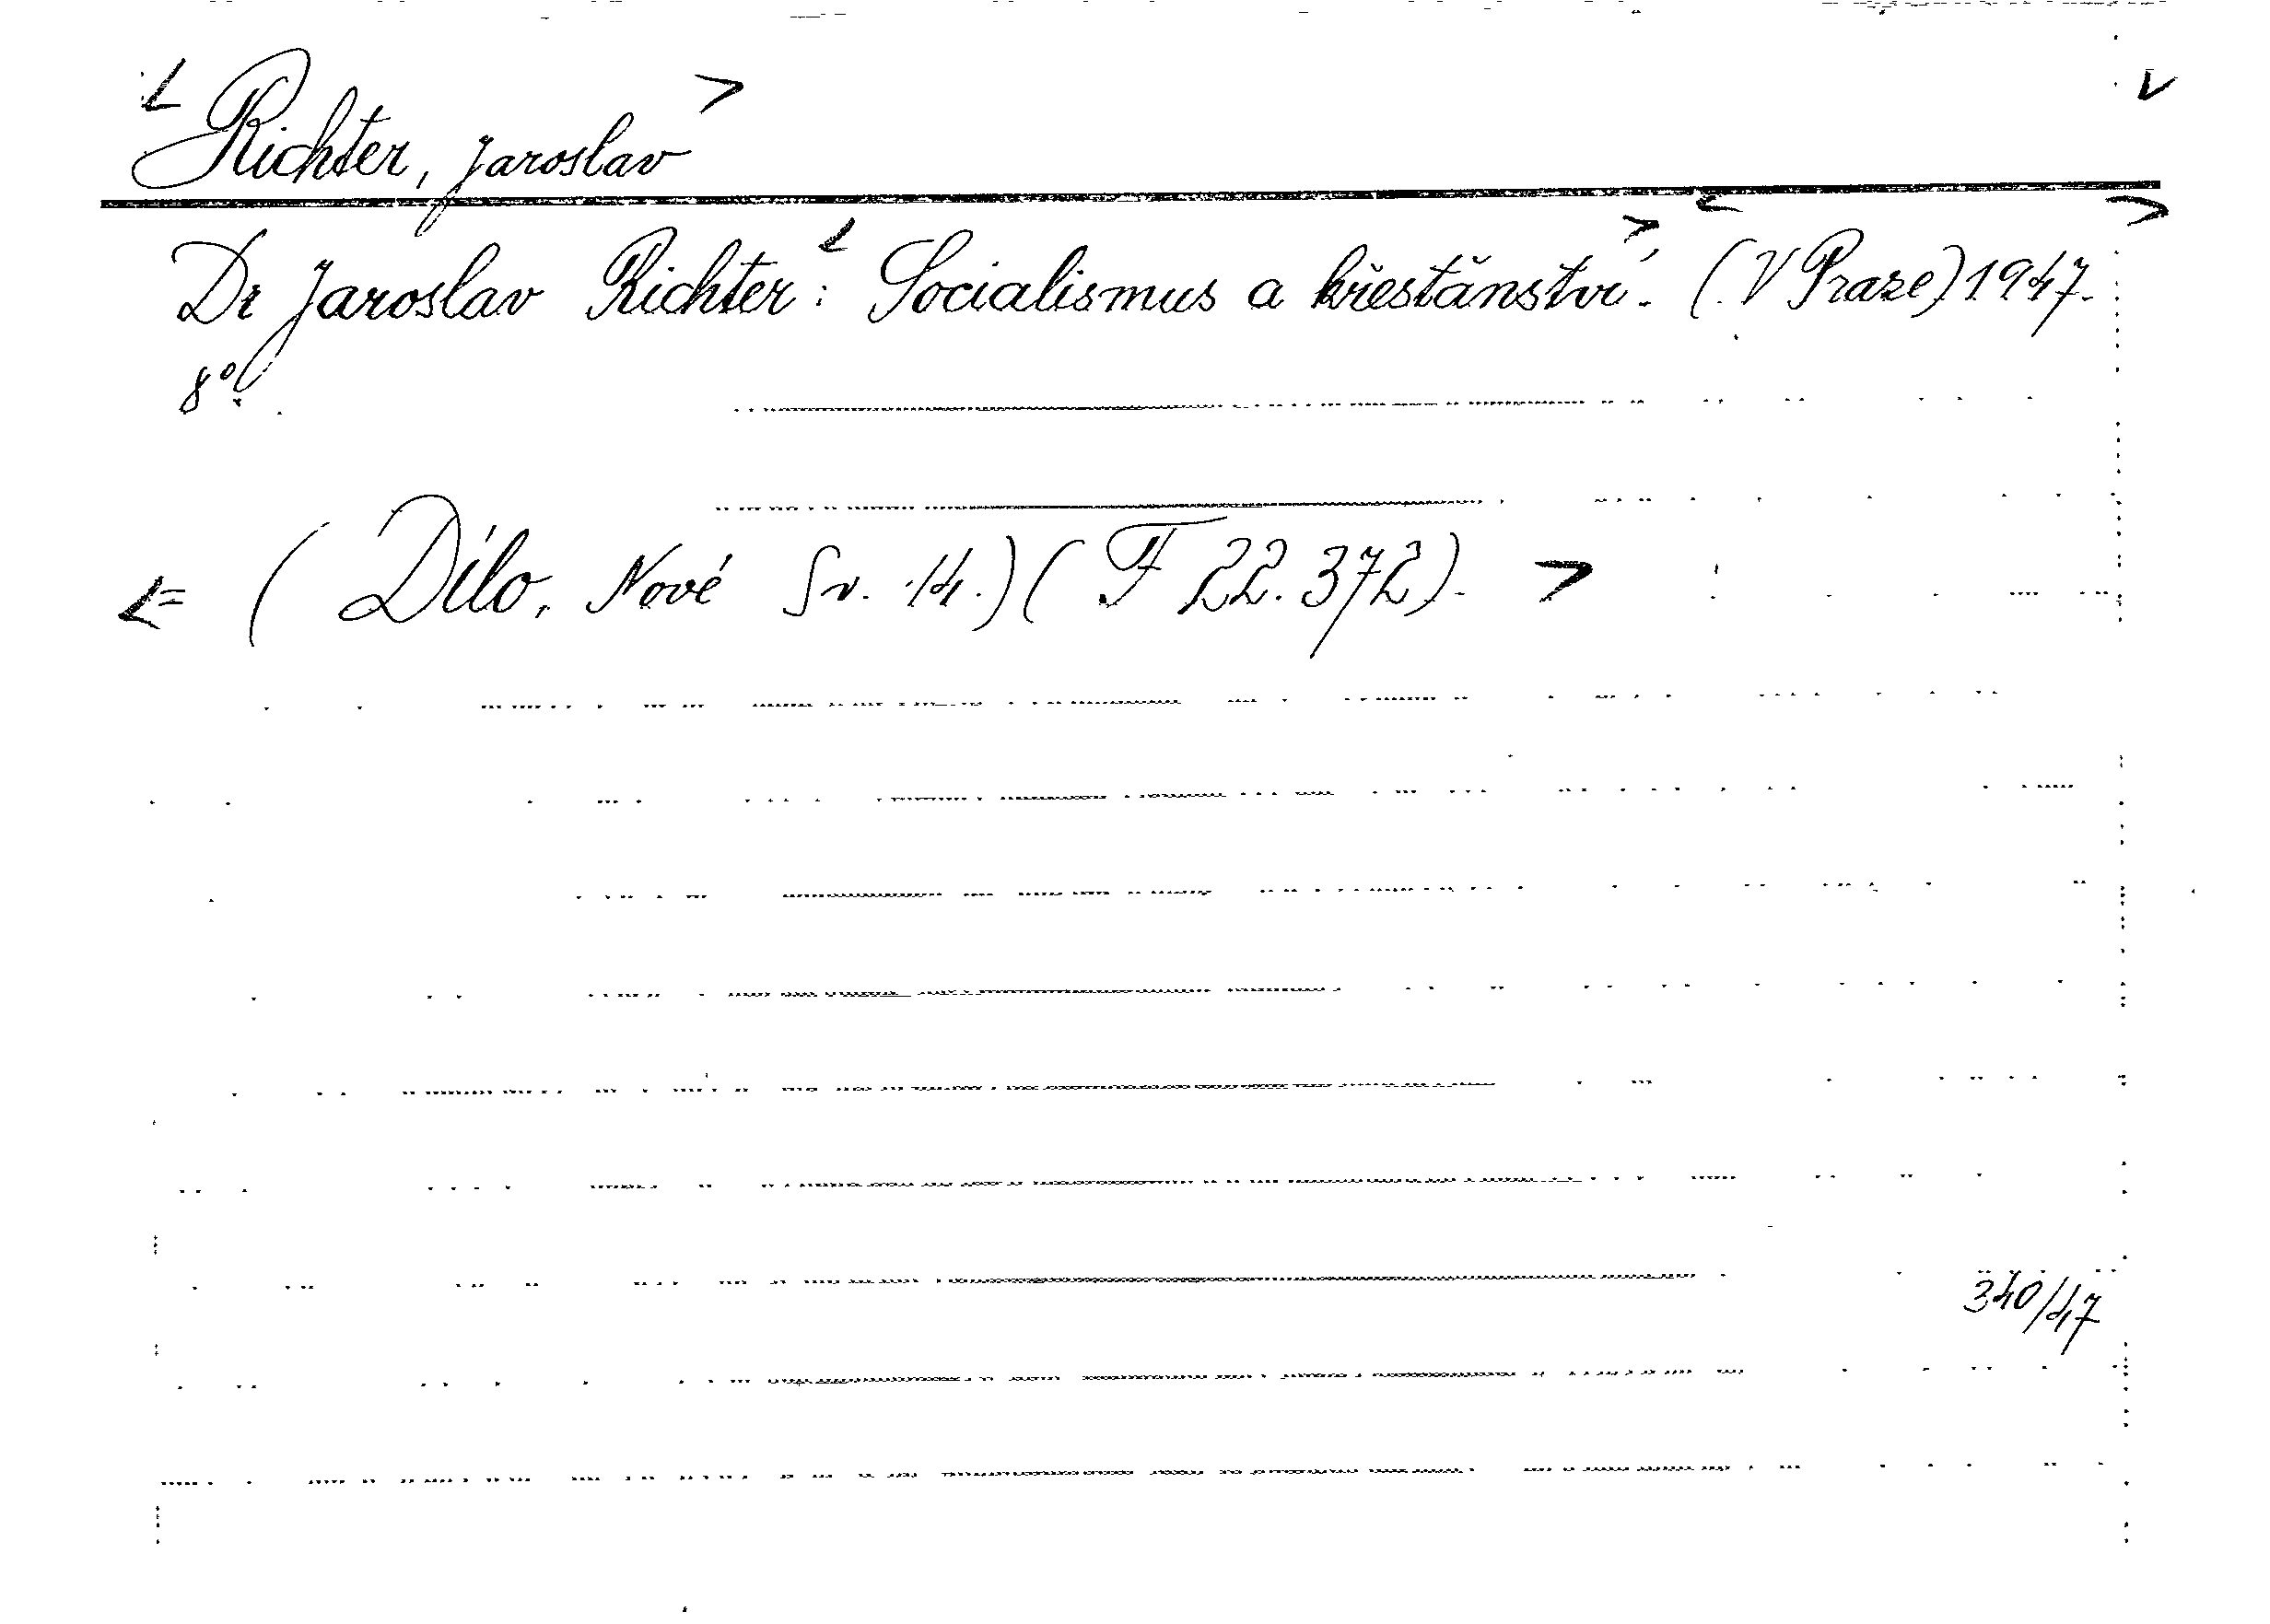 < Richter, Jaroslav > V
Dr Jaroslav Richter: < Socialismus a křesťanství. > < (V Praze) 1947. >
8°.
<= (Dílo, Nové Sv. 14.) (F 22.372). >
340/47